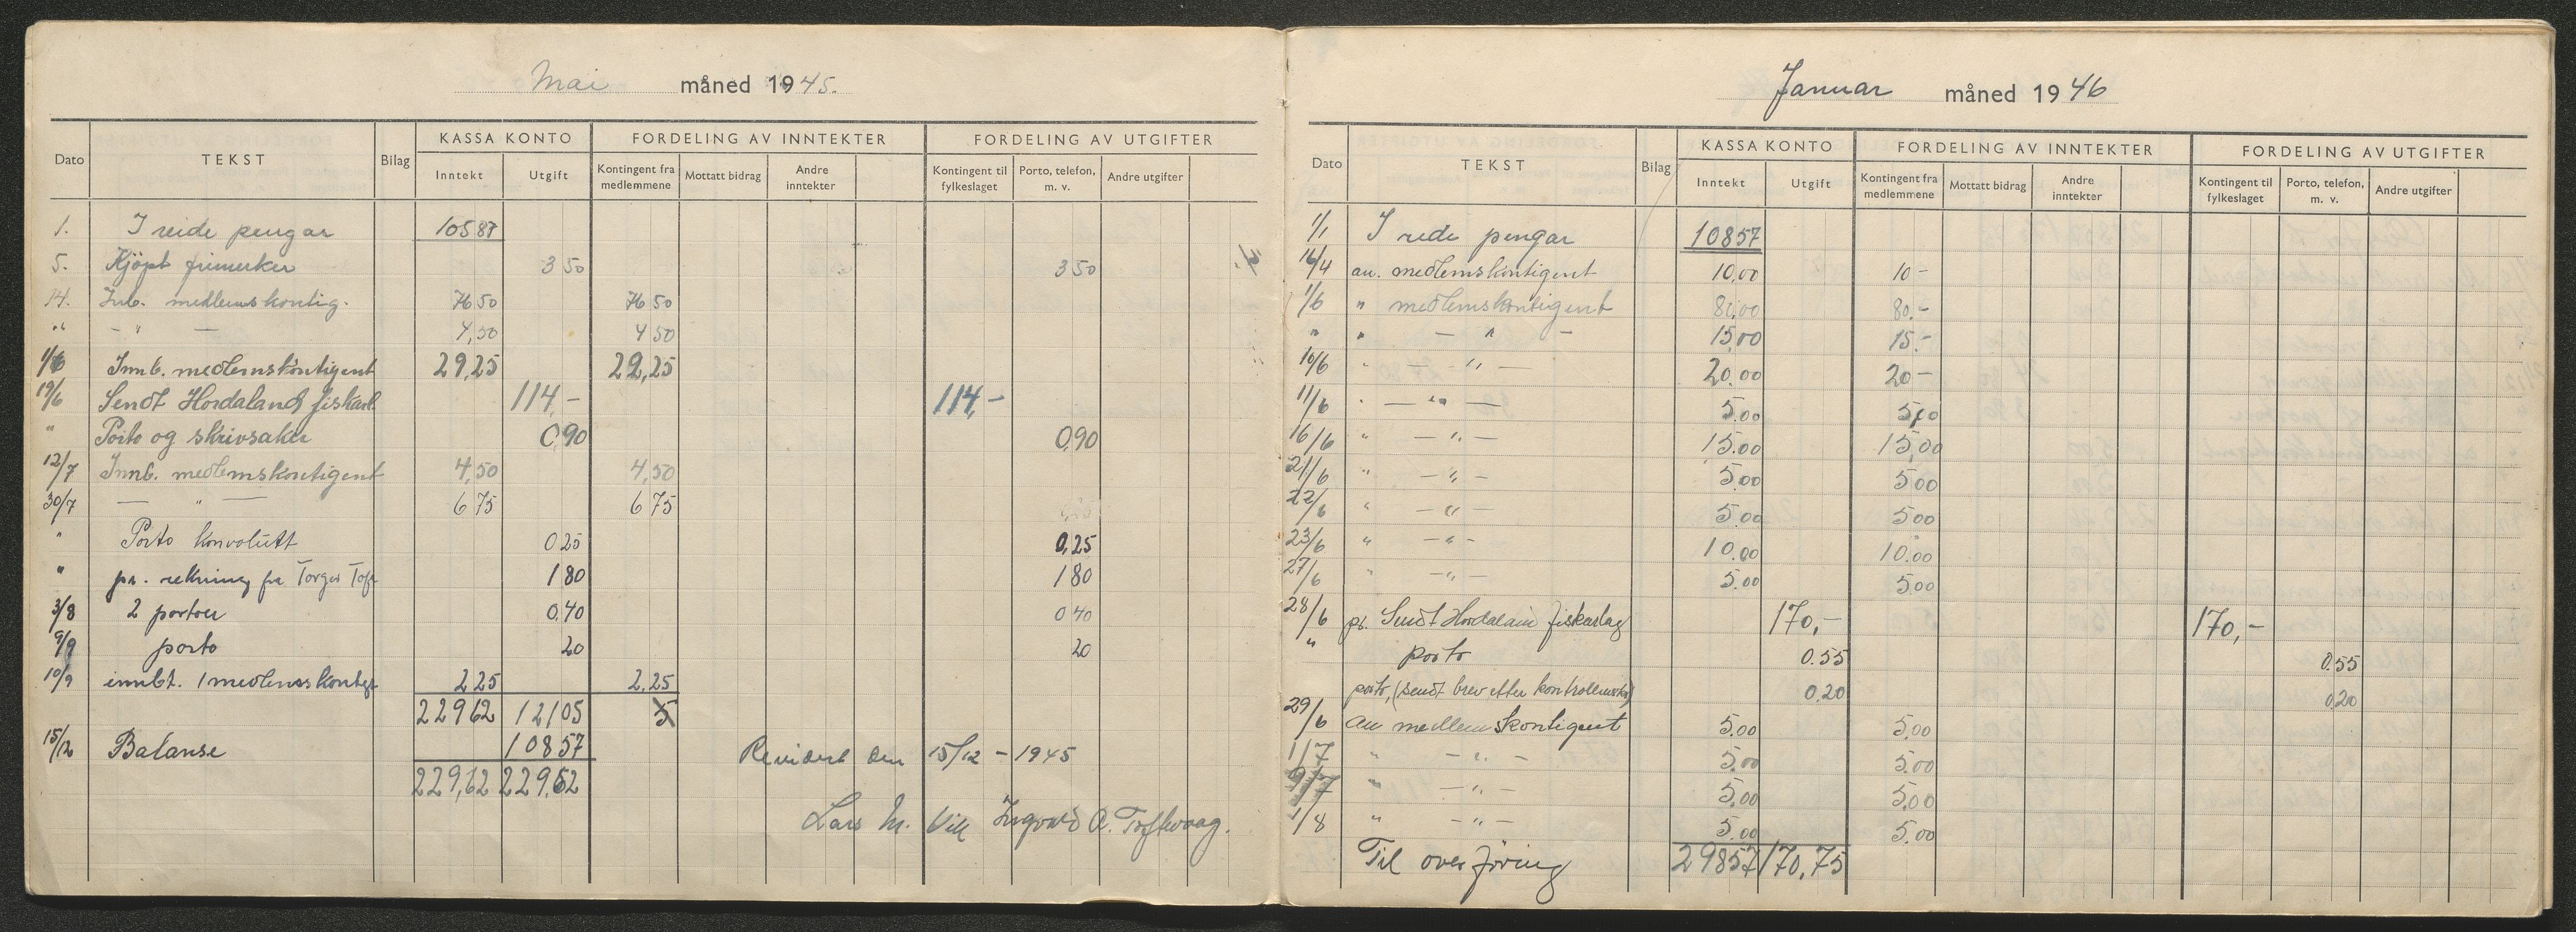 Mai måned 1945.
KASSA KONTO FORDELING AV INNTEKTER FORDELING AV UTGIFTER
Dato TEKST Bilag Inntekt Utgift Kontingent fra medlemmene Mottatt bidrag Andre inntekter Kontingent til fylkeslaget Porto, telefon, m. v. Andre utgifter
1. I reide pengar 10587
5. Kjöpt frimerker 3 50 3 50
14. Inb. medlemskontig. 76 50 76 50
" - " - 4,50 4 50
1/6 Innb. medlemskontigent 29,25 29,25
19/6 Sendt Hordaland fiskarl. 114,- 114,-
" Porto og skrivsaker 0,90 0,90
12/7 Innb. medlemskontigent 4,50 4,50
30/7 — " — 6 75 6 75
" Porto konvolutt 0 25 0,25
" pr. rekning fra Torger Tof 1 80 1 80
3/8 2 portoer 0,40 0 40
9/9 porto 20 20
10/9 innbt. 1 medlemskontgt 2 25 2,25
22962 12105
15/12 Balanse 10857
229,62 229,62
Revidert den 15/12 - 1945
Lars M. Vik Ingvald O. Toftevaag.
Januar måned 1946
KASSA KONTO FORDELING AV INNTEKTER FORDELING AV UTGIFTER
Dato TEKST Bilag Inntekt Utgift Kontingent fra medlemmene Mottatt bidrag Andre inntekter Kontingent til fylkeslaget Porto, telefon, m. v. Andre utgifter
1/1 I rede pengar 10857
16/4 an. medlemskontigent 10,00 10-
1/6 " medlemskontigent 80,00 80.-
" " — " — 15,00 15.-
10/6 " — " — 20.00 20-
11/6 " — " — 5.00 5,00
16/6 " — " — 15.00 15,00
21/6 " — " — 5.00 5 00
22/6 " — " — 5.00 5 00
23/6 " — " — 10.00 10.00
27/6 " — " — 5.00 5.00
28/6 pr. Sendt Hordaland fiskarlag 170,- 170,-
" porto 0.55 0.55
porto, (sendt brev etter 0.20 0,20
29/6 an medlemskontigent 5.00 5,00
1/7 " — " — 5.00 5.00
" — " — 5,00 5,00
1/8 " — " — 5.00 5.00
Til överföring 29857 170,75